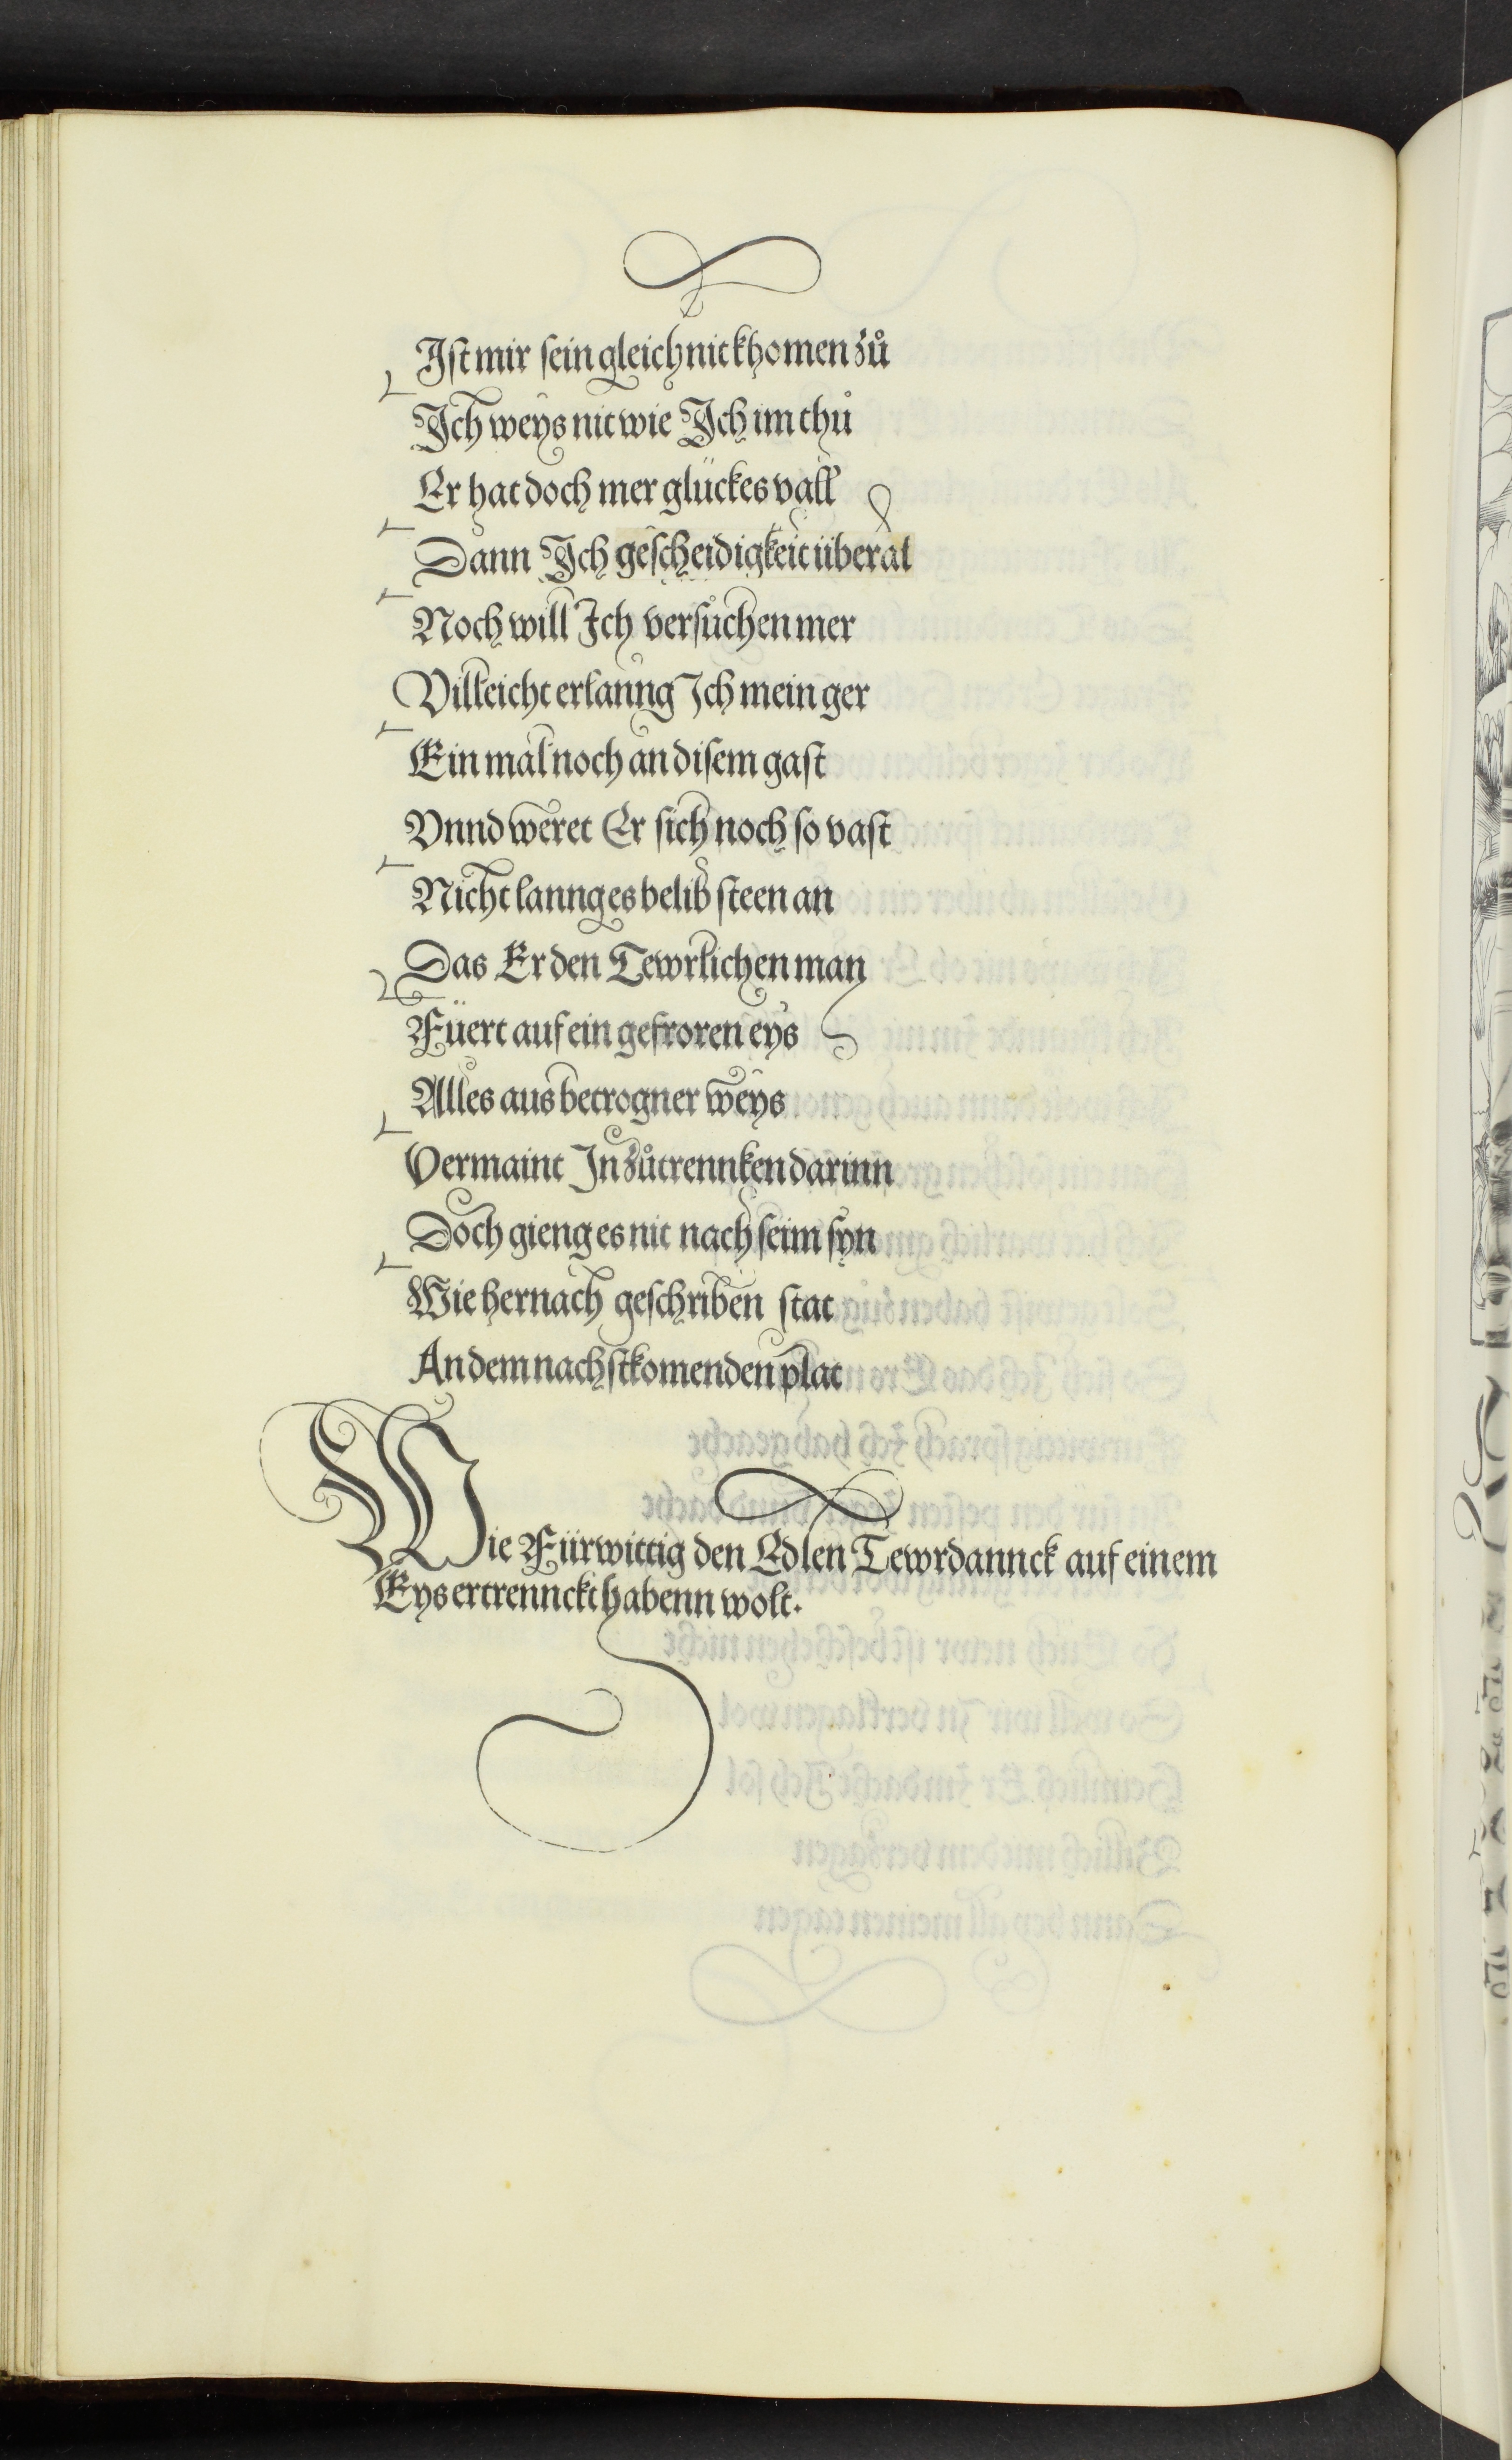 Iſt mir ſein gleich nit khomen zů
Ich weys nit wie Ich im thů
Er hat doch mer glückes vall
Dann Ich geſcheidigkeit überal
Noch will Ich verſůchen mer
Villeicht erlanng Ich mein ger
Ein mal noch an diſem gaſt
Vnnd weret Er ſich noch ſo vaſt
Nicht lanng es belib ſteen an
Das Er den Tewrlichen man
Füert auf ein gefroren eys
Alles aus betrogner weys
Vermaint In zůtrennken darinn
Doch gieng es nit nach ſeim ſyn
Wie hernach geſchriben ſtat
An dem nachſtkomenden plat
Wie Fürwittig den Edlen Tewrdannck auf einem
Eys ertrennckt habenn wolt.